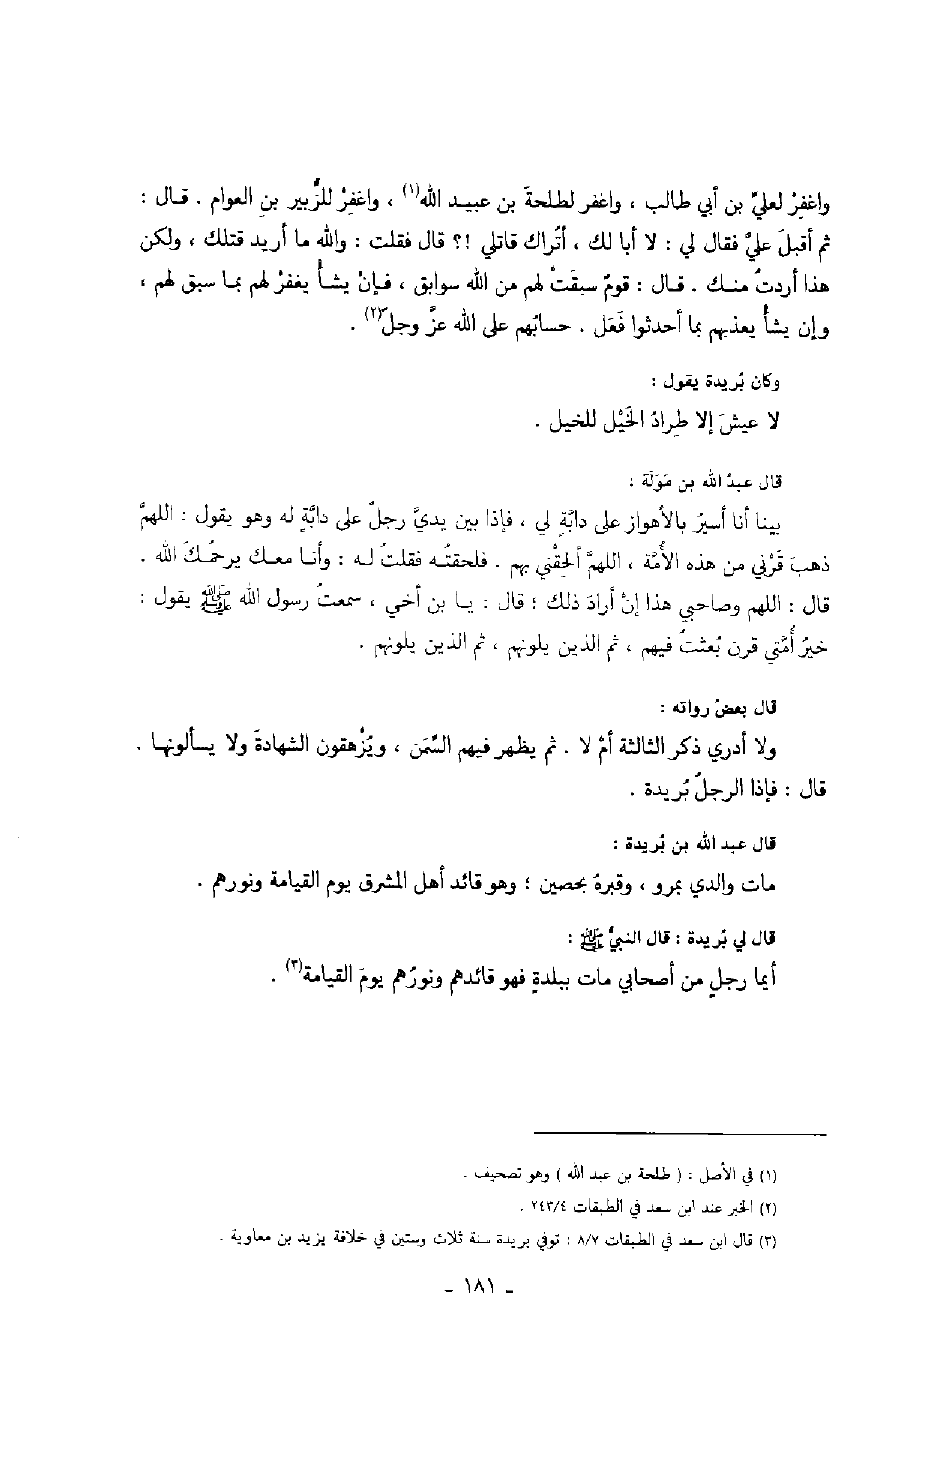 واغفِرْ لعليّ بن أبي طالب ، واغفر لطلحةَ بن عبيد الله(١) ، واغفِرْ للزُّبير بنِ العوام . قال :
ثم أقبلَ عليَّ فقال لي : لا أبا لك ، أتُراك قاتلي !؟ قال فقلت : والله ما أريد قتلك ، ولكن
هذا أردتُ منك . قال : قومٌ سبقَتْ لهم من الله سوابق ، فإنْ يشأْ يغفرْ لهم بما سبق لهم ،
وإن يشأْ يعذبهم بما أحدثوا فَعَل . حسابُهم على الله عزَّ وجلّ(٢) .
وكان بُريدة يقول :
لا عيشَ إلا طِرادُ الخَيْل للخيل .
قال عبدُ الله بن مَوَلَة :
بينا أنا أسيرُ بالأهواز على دابَّةٍ لي ، فإذا بين يديَّ رجلٌ على دابَّةٍ له وهو يقول : اللهمَّ
ذهبَ قَرْني من هذه الأُمَّة ، اللهمَّ ألحِقْني بهم . فلحقتُه فقلتُ له : وأنا معك يرحمُكَ الله .
قال : اللهم وصاحبي هذا إنْ أرادَ ذلك ؛ قال : يا بن أخي ، سمعتُ رسول الله ﷺ يقول :
خيرُ أُمَّتي قرن بُعثتُ فيهم ، ثم الذين يلونهم ، ثم الذين يلونهم .
قال بعضُ رواته :
ولا أدري ذكر الثالثة أمْ لا . ثم يظهر فيهم السِّمَن ، ويُزْهِقون الشهادةَ ولا يسألونها .
قال : فإذا الرجلُ بُريدة .
قال عبد الله بن بُريدة :
مات والدي بمرو ، وقبرهُ بحصين ؛ وهو قائد أهل المشرق يوم القيامة ونورهم .
قال لي بُريدة : قال النبيُّ ﷺ :
أيما رجلٍ من أصحابي مات ببلدةٍ فهو قائدهم ونورُهم يومَ القيامة(٣) .
(١) في الأصل : ( طلحة بن عبد الله ) وهو تصحيف .
(٢) الخبر عند ابن سعد في الطبقات ٢٤٣/٤ .
(٣) قال ابن سعد في الطبقات ٨/٧ : توفي بريدة سنة ثلاث وستين في خلافة يزيد بن معاوية .
- ١٨١ -